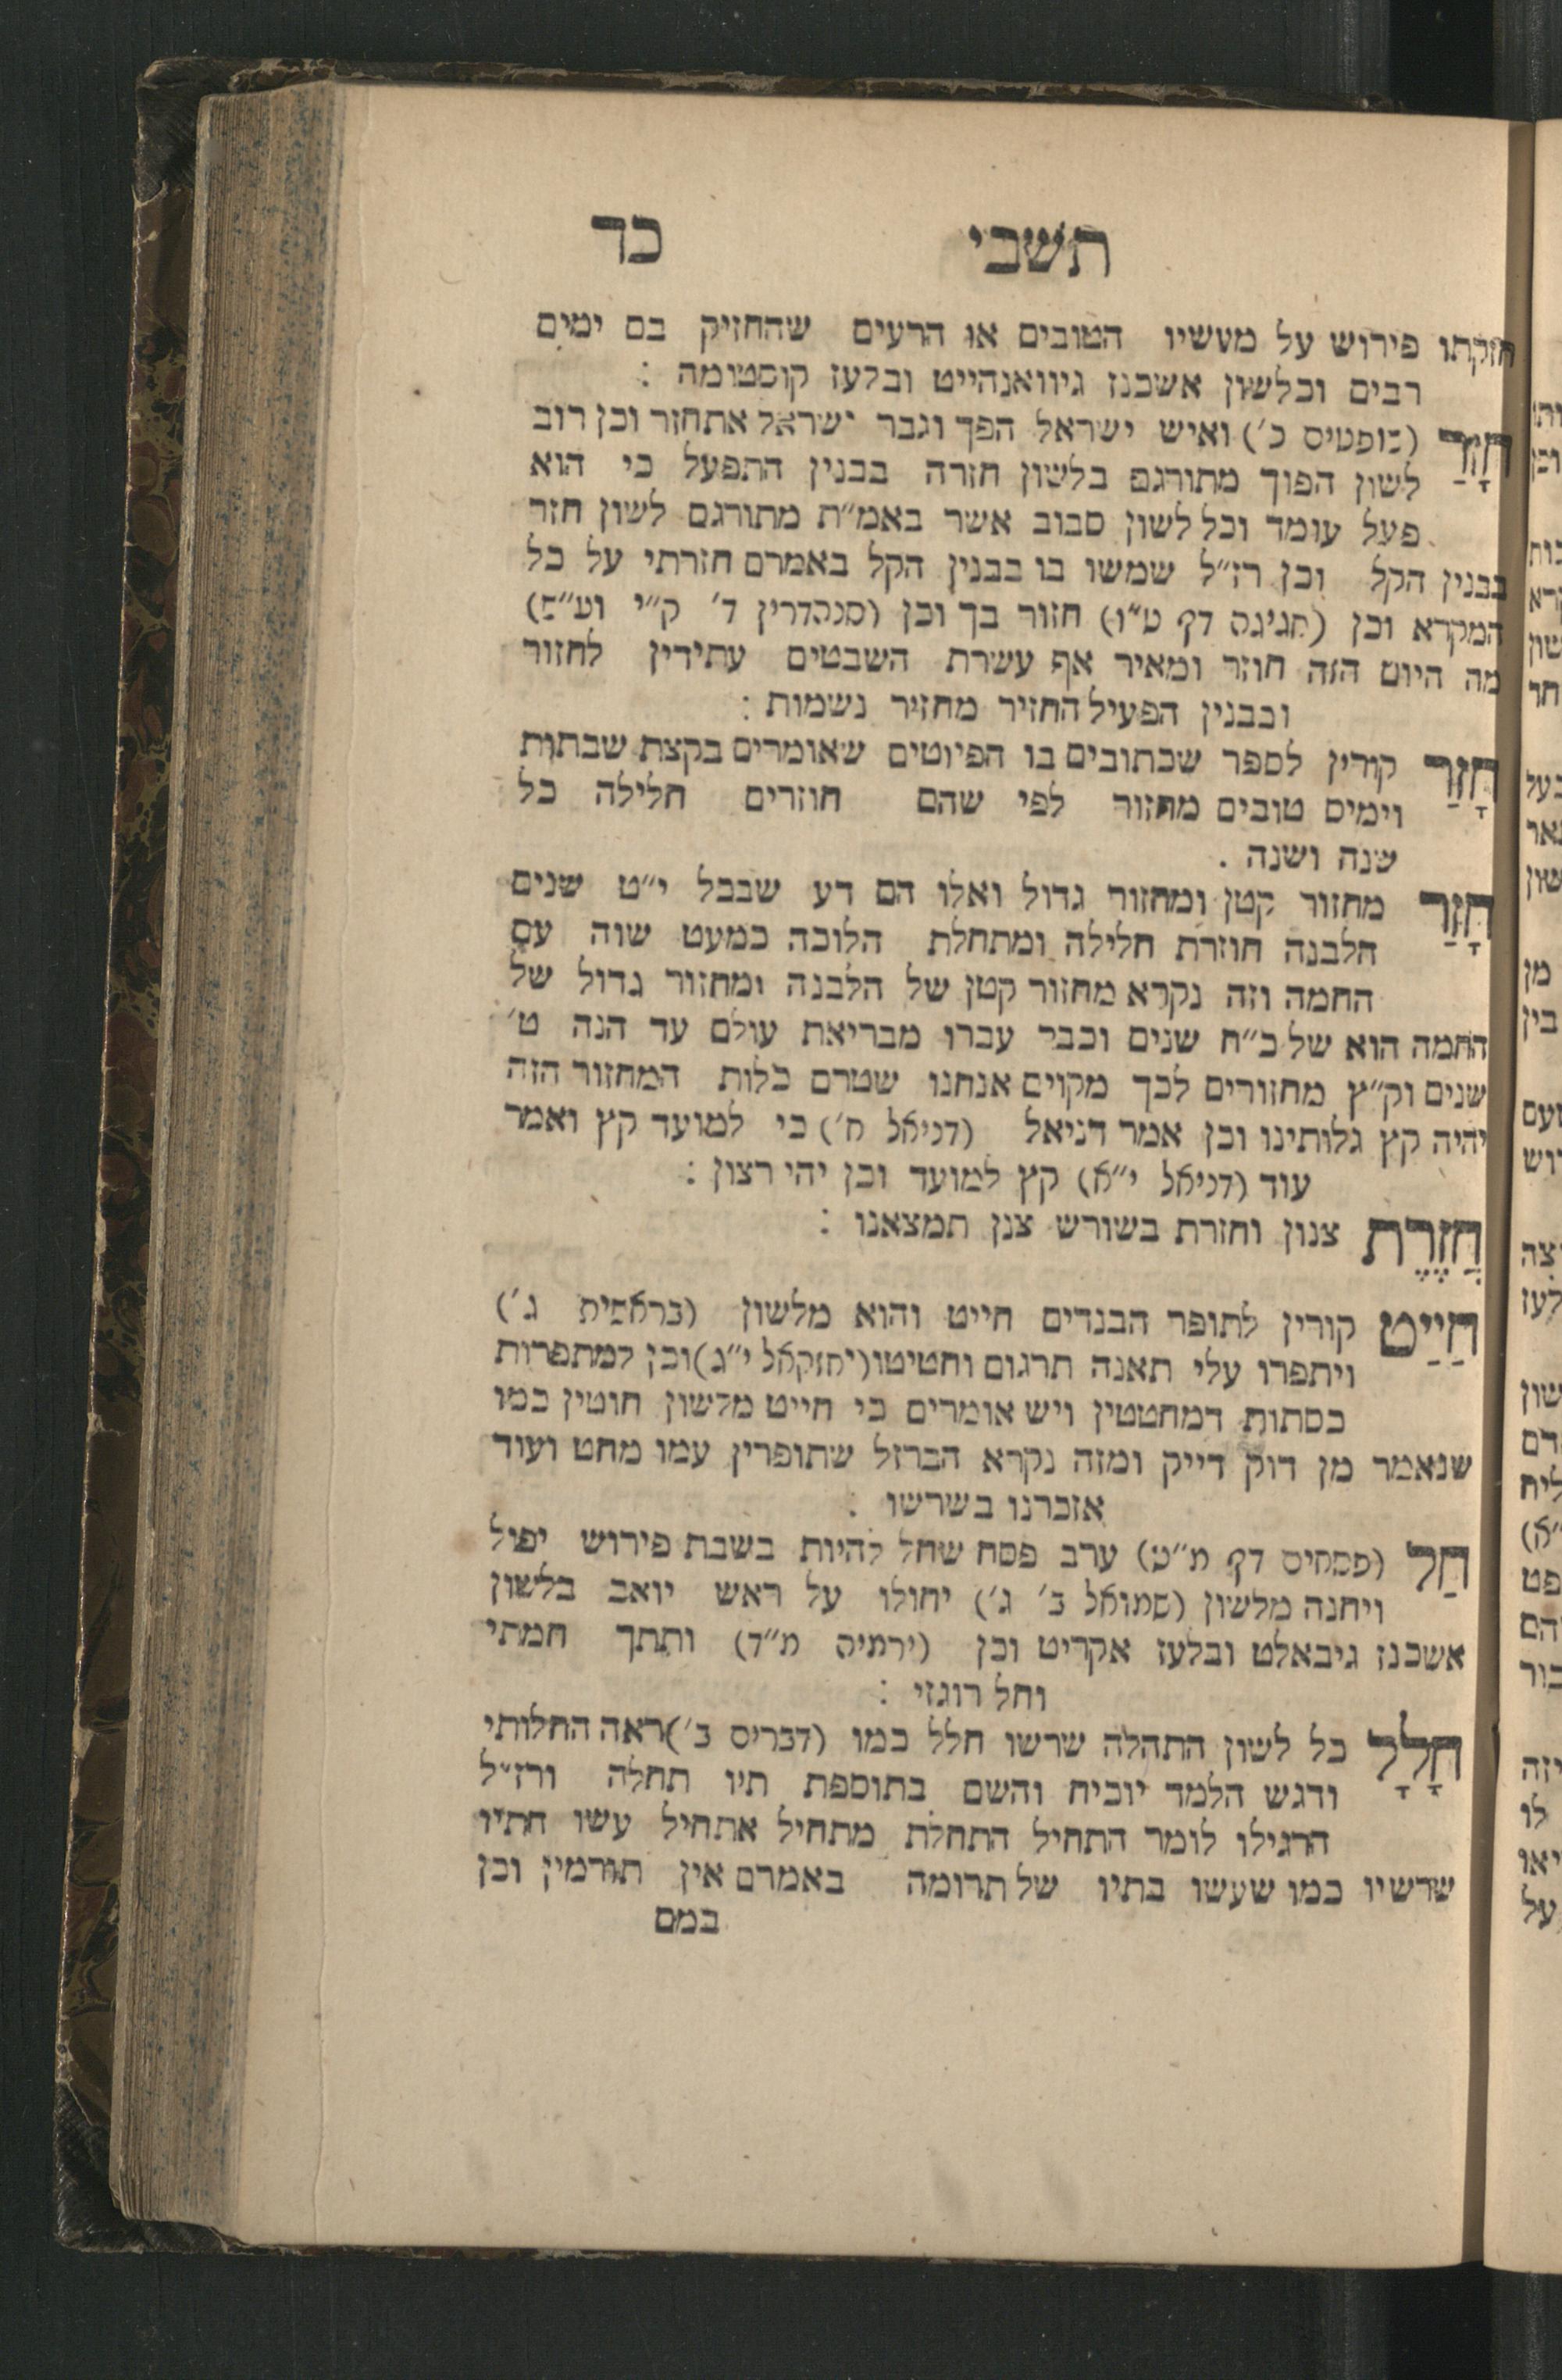 תשבי כד
חזקתו פירוש על מעשיו הטובים או הרעים שהחזיק בם ימים
רבים ובלשון אשכנז גיוואנהייט ובלעז קוסטומה :
חָזַר (שופטים כ׳) ואיש ישראל הפך וגבר ישראל אתחזר וכן רוב
לשון הפוך מתורגם בלשון חזרה בבנין התפעל כי הוא
פעל עומד וכל לשון סבוב אשר באמ״ת מתורגם לשון חזר
בבנין הקל וכן רז״ל שמשו בו בבנין הקל באמרם חזרתי על כל
המקרא וכן (חגיגה דף ט״ו) חזור בך וכן (סנהדרין ד׳ ק״י וע״ש)
מה היום הזה חוזר ומאיר אף עשרת השבטים עתידין לחזור
ובבנין הפעיל החזיר מחזיר נשמות :
חָזַר קורין לספר שכתובים בו הפיוטים שאומרים בקצת שבתות
וימים טובים מחזור לפי שהם חוזרים חלילה כל
שנה ושנה .
חָזַר מחזור קטן ומחזור גדול ואלו הם דע שבכל י״ט שנים
הלבנה חוזרת חלילה ומתחלת הלוכה כמעט שוה עם
החמה וזה נקרא מחזור קטן של הלבנה ומחזור גדול של
החמה הוא של כ״ח שנים וכבר עברו מבריאת עולם עד הנה ט׳
שנים וק״ץ מחזורים לכך מקוים אנחנו שטרם כלות המחזור הזה
יהיה קץ גלותינו וכן אמר דניאל (דניאל ח׳) כי למועד קץ ואמר
עוד (דניאל י״א) קץ למועד וכן יהי רצון :
חֲזֶרֶת צנון וחזרת בשורש צנן תמצאנו :
חַיַיט קורין לתופר הבגדים חייט והוא מלשון (בראשית ג׳)
ויתפרו עלי תאנה תרגום וחטיטו (יחזקאל י״ג) וכן למתפרות
כסתות דמחטטין ויש אומרים כי חייט מלשון חוטין כמו
שנאמר מן דוק דייק ומזה נקרא הברזל שתופרין עמו מחט ועוד
אזכרנו בשרשו :
חַל (פסחים דף מ״ט) ערב פסח שחל להיות בשבת פירוש יפול
ויחנה מלשון (שמואל ב׳ ג׳) יחולו על ראש יואב בלשון
אשכנז גיבאלט ובלעז אקריט וכן (ירמיה מ״ד) ותתך חמתי
וחל רוגזי :
חָלָל כל לשון התהלה שרשו חלל כמו (דברים ב׳) ראה החלותי
ודגש הלמד יוכיח והשם בתוספת תיו תחלה ורז״ל
הרגילו לומר התחיל התחלת מתחיל אתחיל עשו התיו
שרשיו כמו שעשו בתיו של תרומה באמרם אין תורמין וכן
במם